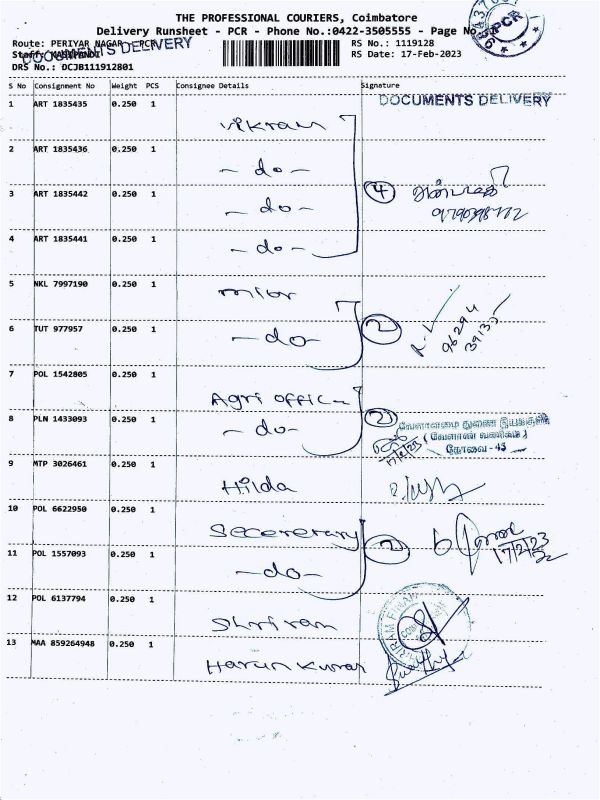 THE PROFESSIONAL COURIERS, Coimbatore
Delivery Runsheet - PCR - Phone No.:0422-3505555 - Page No
PCR
Route: PERIYAR NAGAR - PCR
RS No.: 1119128
DOCUMENTS DELIVERY
Staff:
RS Date: 17-Feb-2023
DRS No.: DCJB111912801
S No Consignment No Weight PCS Consignee Details Signature
DOCUMENTS DELIVERY
1 ART 1835435 0.250 1 Vikram
2 ART 1835436 0.250 1 - do -
3 ART 1835442 0.250 1 - do - 4
4 ART 1835441 0.250 1 - do -
5 NKL 7997190 0.250 1
6 TUT 977957 0.250 1 - do - 2
96294
39133
7 POL 1542805 0.250 1 Agri office
8 PLN 1433093 0.250 1 - do - 2
வேளாண்மை துணை இயக்குநர்
(வேளாண் வணிகம்)
17/2/23 கோவை - 43
9 MTP 3026461 0.250 1 Hilda
10 POL 6622950 0.250 1 Secereterary
17/2/23
11 POL 1557093 0.250 1 - do -
12 POL 6137794 0.250 1 Shriram
13 MAA 859264948 0.250 1 Harun Kumar